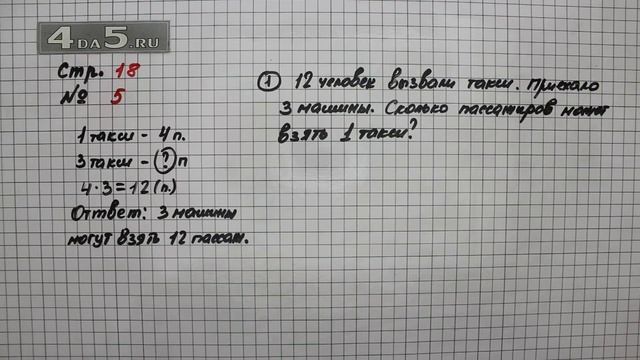 4DA5.RU
Стр. 18
№ 5
1 такси - 4 п.
3 такси - ? п
4·3=12 (п.)
Ответ: 3 машины
могут взять 12 пассаж.
1 12 человек вызвали такси. Приехало
3 машины. Сколько пассажиров может
взять 1 такси?